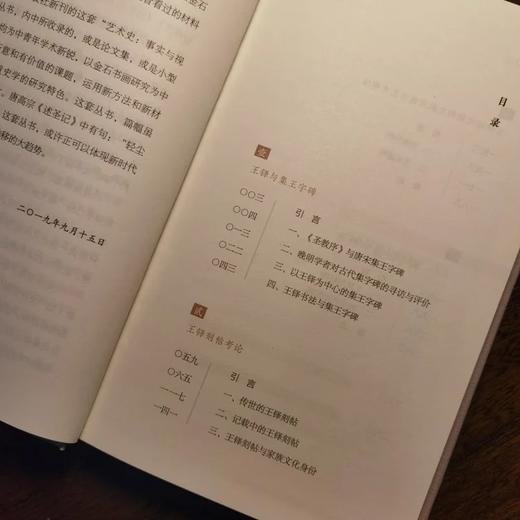 金石
看过的材料
社在新刊的这套“艺术史：事实与视
丛书，内中所收录的，或是论文集，或是小型
均为中青年学术新锐，以金石书画研究为中
意和有价值的课题，运用新方法和新材
史学的研究特色。这套丛书，篇幅虽
唐高宗《述圣记》中有句，“轻尘
这套丛书，或许正可以体现新时代
移的大趋势。
二〇一九年九月十五日
目录
壹
王铎与集王字碑
〇〇三 引言
〇〇四 一、《圣教序》与唐宋集王字碑
〇一三 二、晚明学者对古代集字碑的寻访与评价
〇二二 三、以王铎为中心的集王字碑
〇四三 四、王铎书法与集王字碑
贰
王铎刻帖考论
〇五九 引言
〇六五 一、传世的王铎刻帖
一一七 二、记载中的王铎刻帖
一四一 三、王铎刻帖与家族文化身份